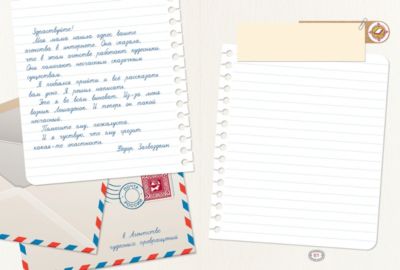 Здравствуйте!
Моя мама нашла адрес вашего
агентства в интернете. Она сказала,
что в этом агентстве работают художники.
Они помогают несчастным сказочным
существам.
Я побоялся прийти и всё рассказать
вам устно. Я решил написать.
Это я во всём виноват. Из-за меня
возник Лошадонок. И теперь он такой
несчастный.
Помогите ему, пожалуйста.
И я чувствую, что ему грозит
какая-то опасность.
Федор
в Агентство
чудесных превращений
61